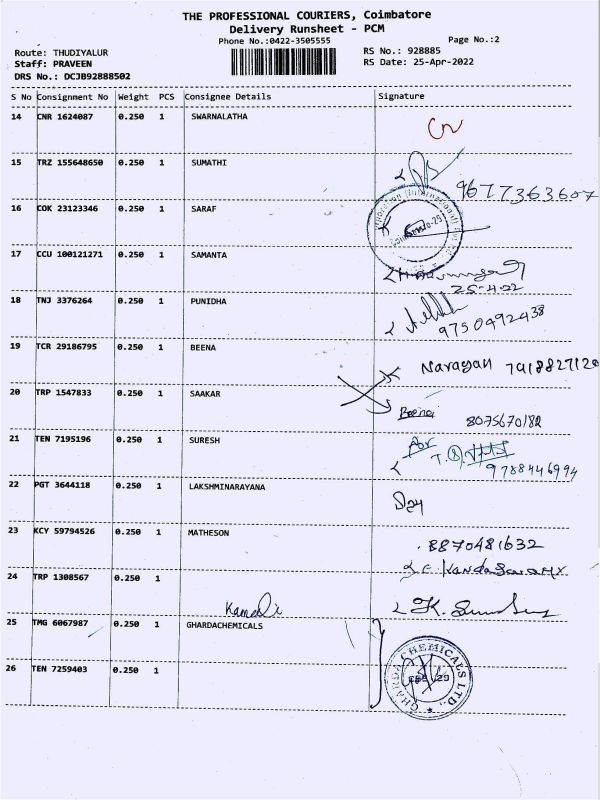 THE PROFESSIONAL COURIERS, Coimbatore
Delivery Runsheet - PCM
Phone No.:0422-3505555
Page No.:2
Route: THUDIYALUR
RS No.: 928885
Staff: PRAVEEN
RS Date: 25-Apr-2022
DRS No.: DCJB92888502
S No Consignment No Weight PCS Consignee Details Signature
14 CNR 1624087 0.250 1 SWARNALATHA
15 TRZ 155648650 0.250 1 SUMATHI
9677363607
16 COK 23123346 0.250 1 SARAF
17 CCU 100121271 0.250 1 SAMANTA
25-4-22
18 TNJ 3376264 0.250 1 PUNIDHA
9750492438
19 TCR 29186795 0.250 1 BEENA
Narayan 7918827120
20 TRP 1547833 0.250 1 SAAKAR
Beena 8075670182
21 TEN 7195196 0.250 1 SURESH
9788446994
22 PGT 3644118 0.250 1 LAKSHMINARAYANA
23 KCY 59794526 0.250 1 MATHESON
8870481632
24 TRP 1308567 0.250 1
25 TMG 6067987 0.250 1 GHARDACHEMICALS
26 TEN 7259403 0.250 1
GHARDA CHEMICALS LTD.